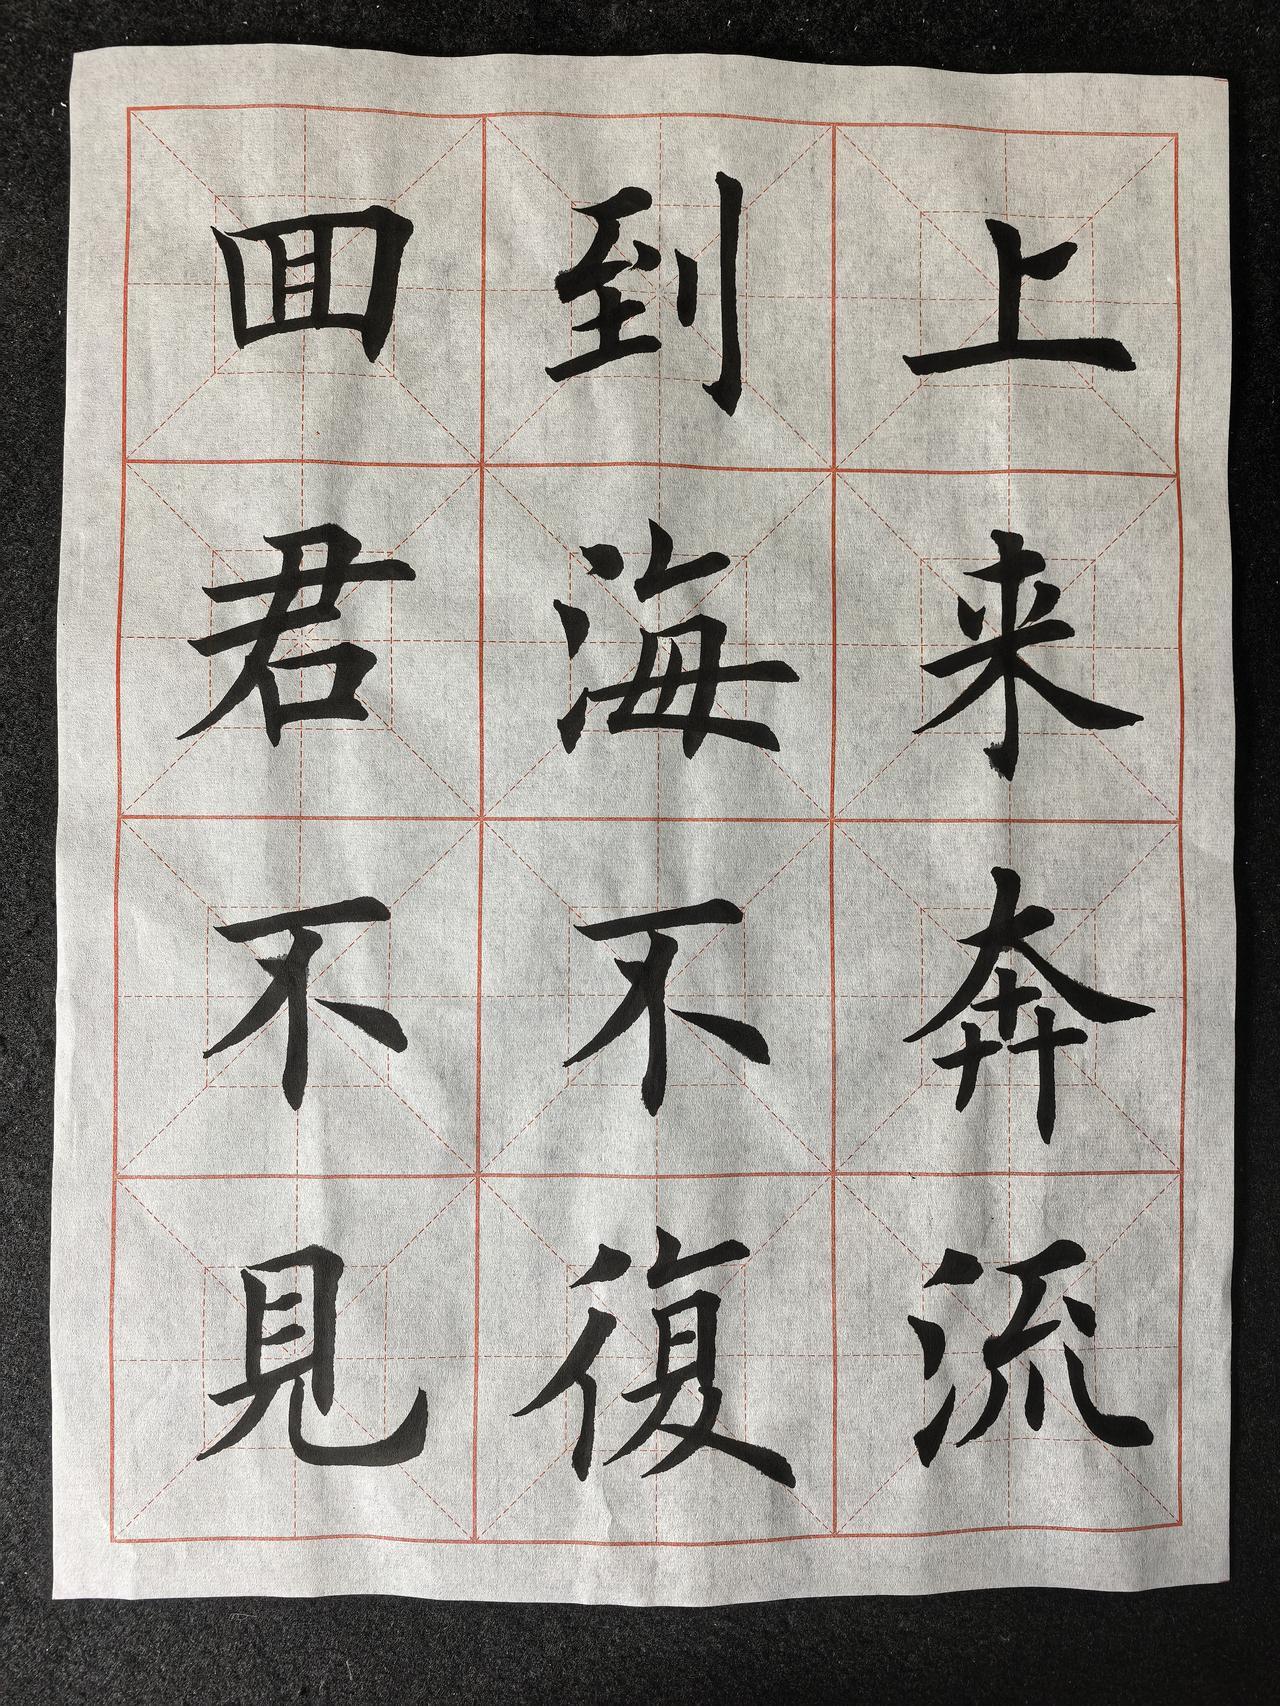 上来奔流
到海不復
囬君不見